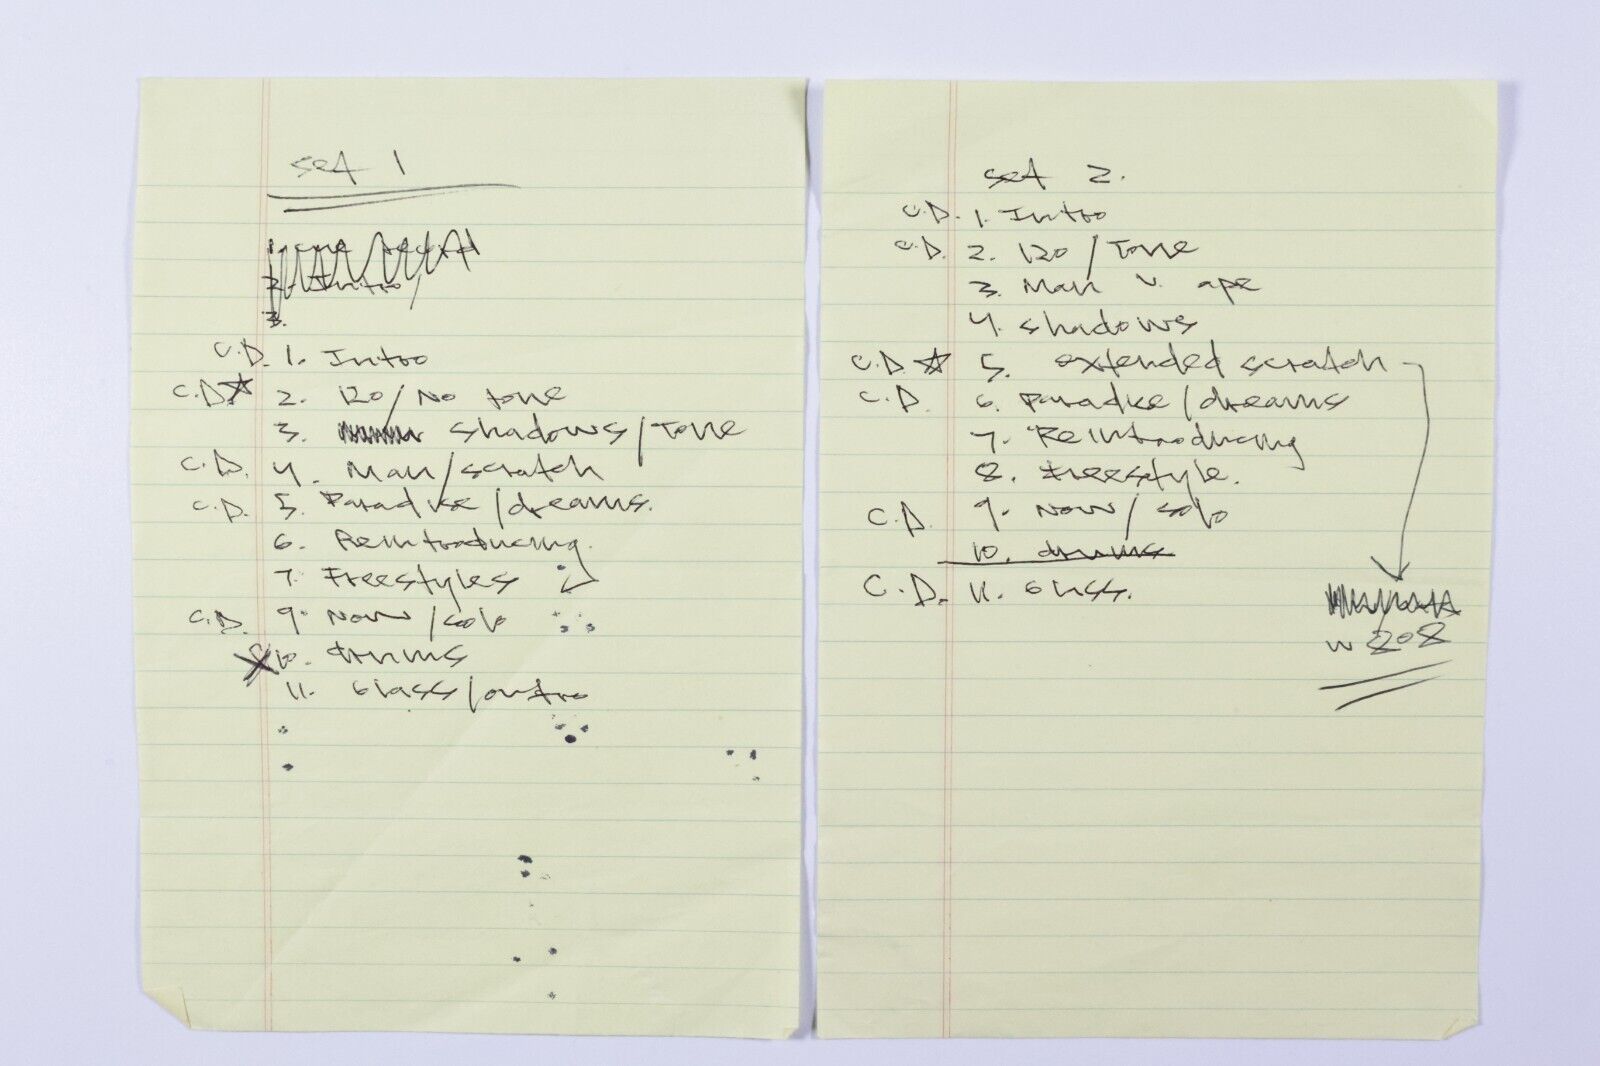 set 1
2. Intro
3.
C.D. 1. Intro
C.D☆ 2. 120/No tone
3. shadows/Tone
C.D. 4. Man/scratch
C.D. 5. Paradise/dreams.
6. Reintroducing.
7. Freestyles
C.D. 9. Now/solo
10. drums
11. Glass/outro
set 2.
C.D. 1. Intro
C.D. 2. 120/Tone
3. Man v. ape
4. shadows
C.D☆ 5. extended scratch
C.D. 6. Paradise/dreams
7. Reintroducing
8. Freestyle.
C.D. 9. Now/solo
10. drums
C.D. 11. Glass.
w 808